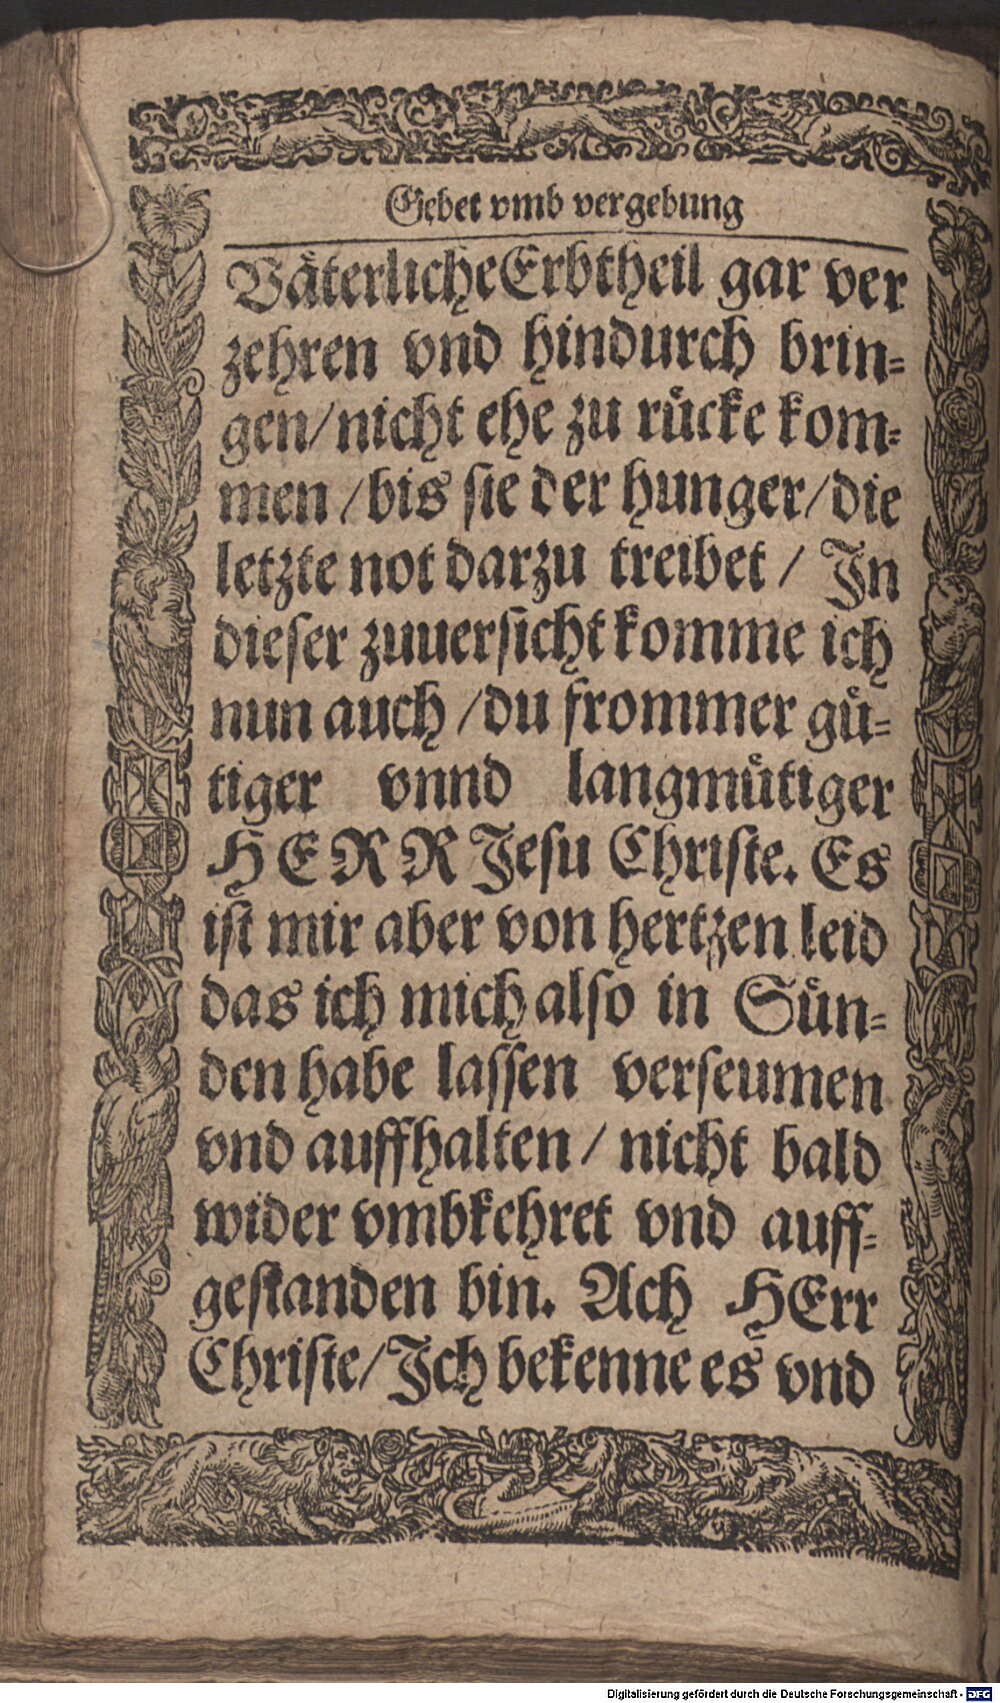 Gebet vmb vergebung
Väterliche Erbtheil gar ver
zehren vnd hindurch brin-
gen/nicht ehe zu rücke kom-
men /bis sie der hunger/die
letzte not darzu treibet / In
dieser zuuersicht komme ich
nun auch /du frommer gü-
tiger vnnd langmütiger
HERR Jesu Christe. Es
ist mir aber von hertzen leid
das ich mich also in Sün-
den habe lassen verseumen
vnd auffhalten/ nicht bald
wider vmbkehret vnd auff-
gestanden bin. Ach HErr
Christe/Ich bekenne es vnd
Digitalisierung gefördert durch die Deutsche Forschungsgemeinschaft - DFG